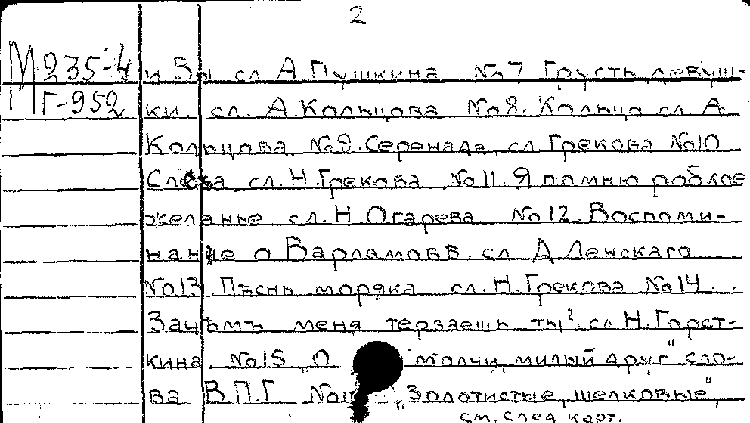 2
М 235-4 и Вы сл. А. Пушкина №7 Грусть девуш-
Г-952 ки. сл. А. Кольцова №8. Кольцо сл. А.
Кольцова №9. Серенада, сл. Грекова №10
Слеза, сл. Н. Грекова, №11. Я помню робкое
желанье сл. Н. Огарева №12. Воспоми-
нание о Варламовѣ, сл. Д. Ленскаго
№13. Пѣснь моряка сл. Н. Грекова №14.
Зачѣмъ меня терзаешь ты? сл. Н. Горст-
кина. №15 „О молчи, милый друг" сло-
ва В.П.Г. „Золотистые, шелковые",
см. след. карт.